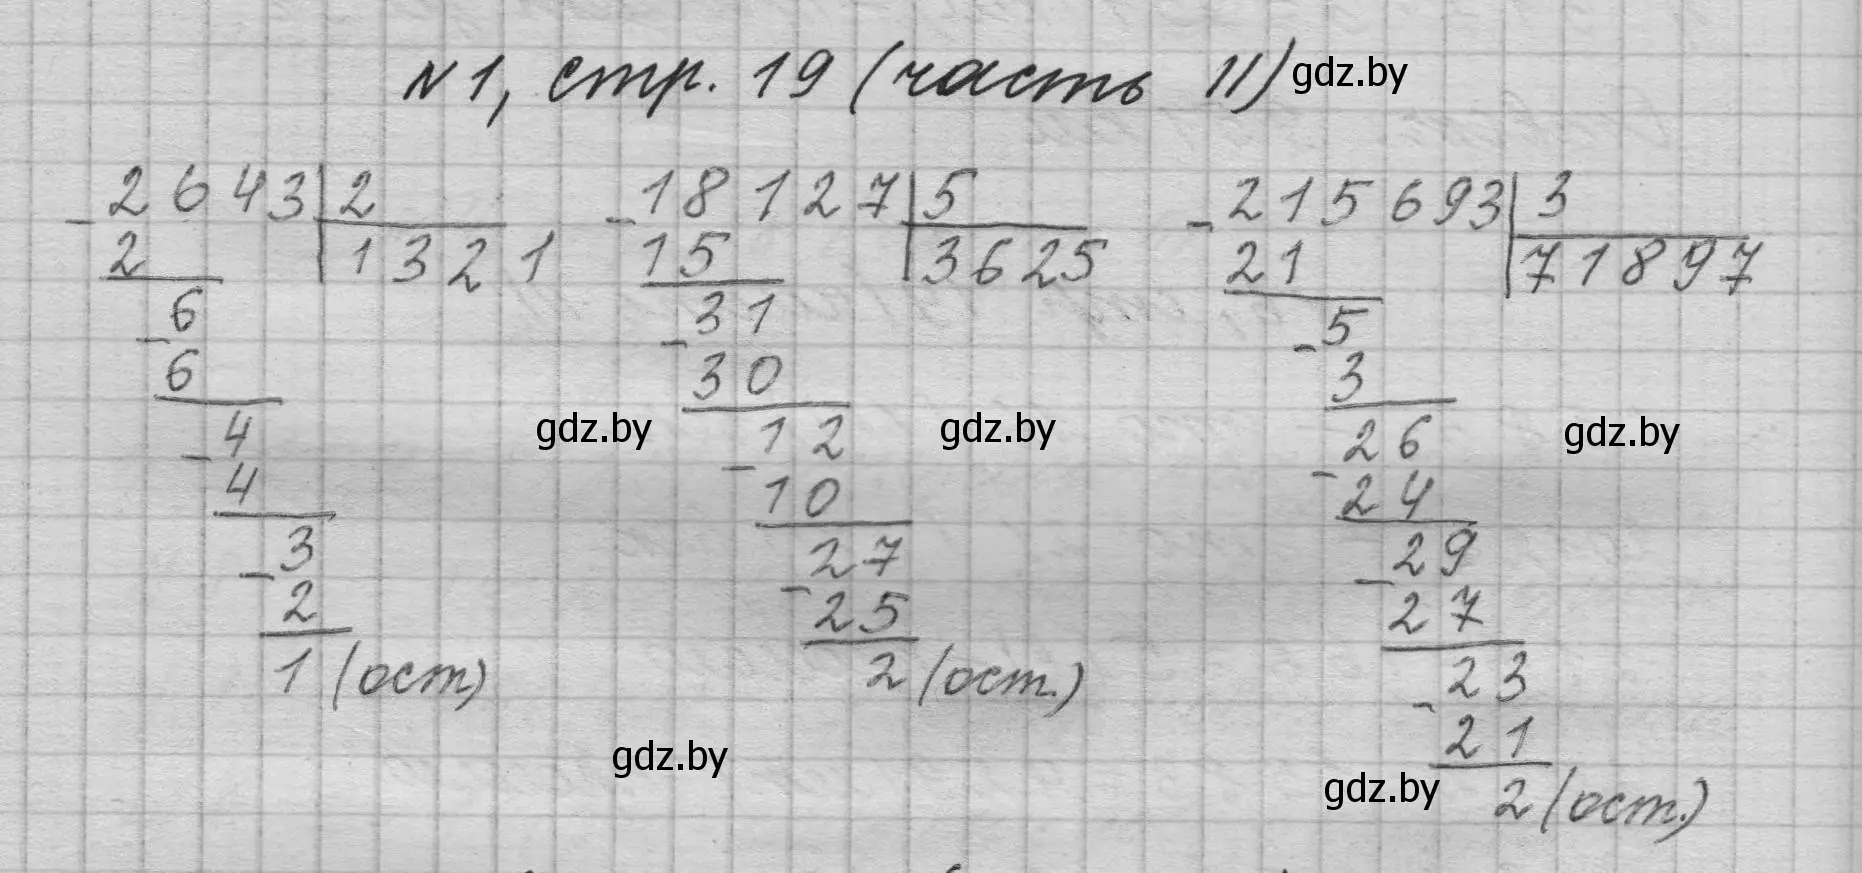 N1, стр. 19 (часть II) gdz.by
- 2643 | 2
2 | 1321
- 6
6
- 4
4
- 3
2
1 (ост)
- 18127 | 5
15 | 3625
- 31
30
- 12
10
- 27
25
2 (ост.)
- 215693 | 3
21 | 71897
- 5
3
- 26
24
- 29
27
- 23
21
2 (ост.)
gdz.by
gdz.by
gdz.by
gdz.by
gdz.by